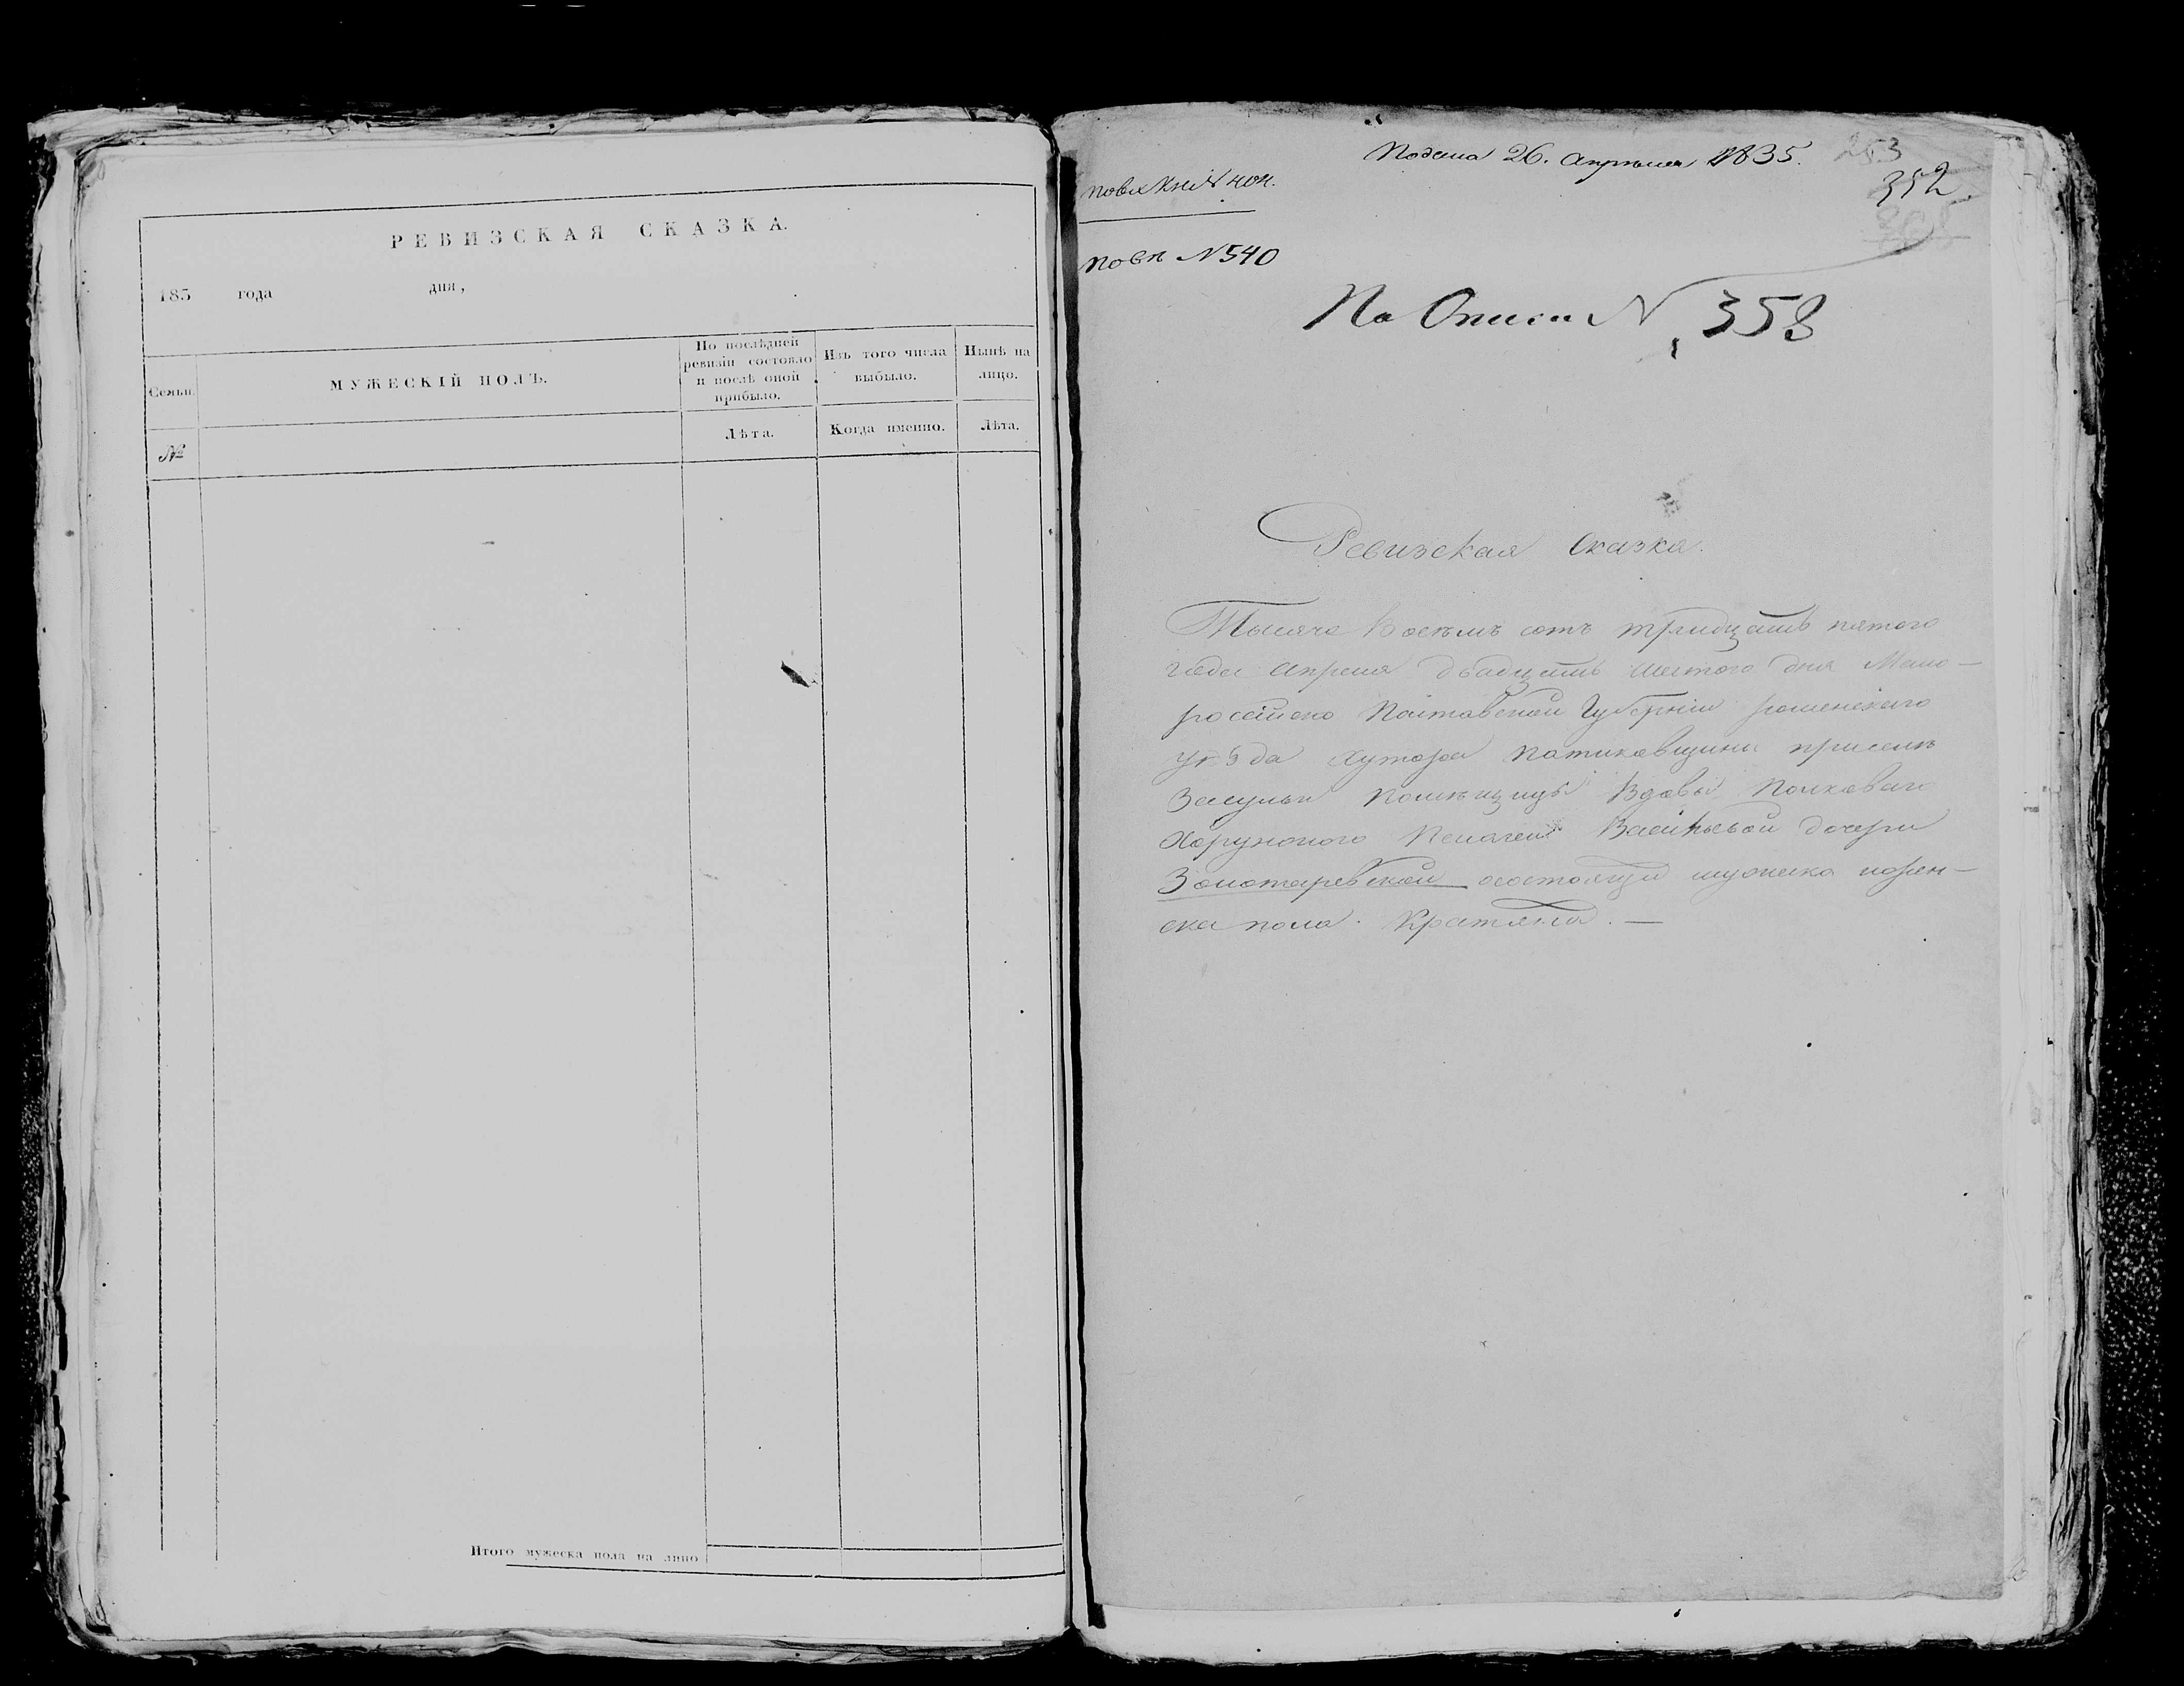 РЕВИЗСКАЯ СКАЗКА.
183 года дня,
Семьи.
МУЖЕСКІЙ ПОЛЪ.
По послѣдней ревизіи состояло и послѣ оной прибыло.
Изъ того числа выбыло.
Нынѣ на лицо.
№
Лѣта.
Когда именно.
Лѣта.
Итого мужеска пола на лицо
Подана 26. апрѣля 1835.
253
352
повѣ N 540
По Описи N 358
Ревизская Сказка.
Тысяча восемъ сотъ тридцать пятого
года апреля двадцать шестого дня Мало-
росейско Полтавской Губерніи роменского
уѣзда хутора
Засульи помѣщицы Вдовы Полковаго
Хорунжого Пелагеи Васильевой дочери
Золотаревской состоящи мужеска и жен-
ска пола. Крестяна. —